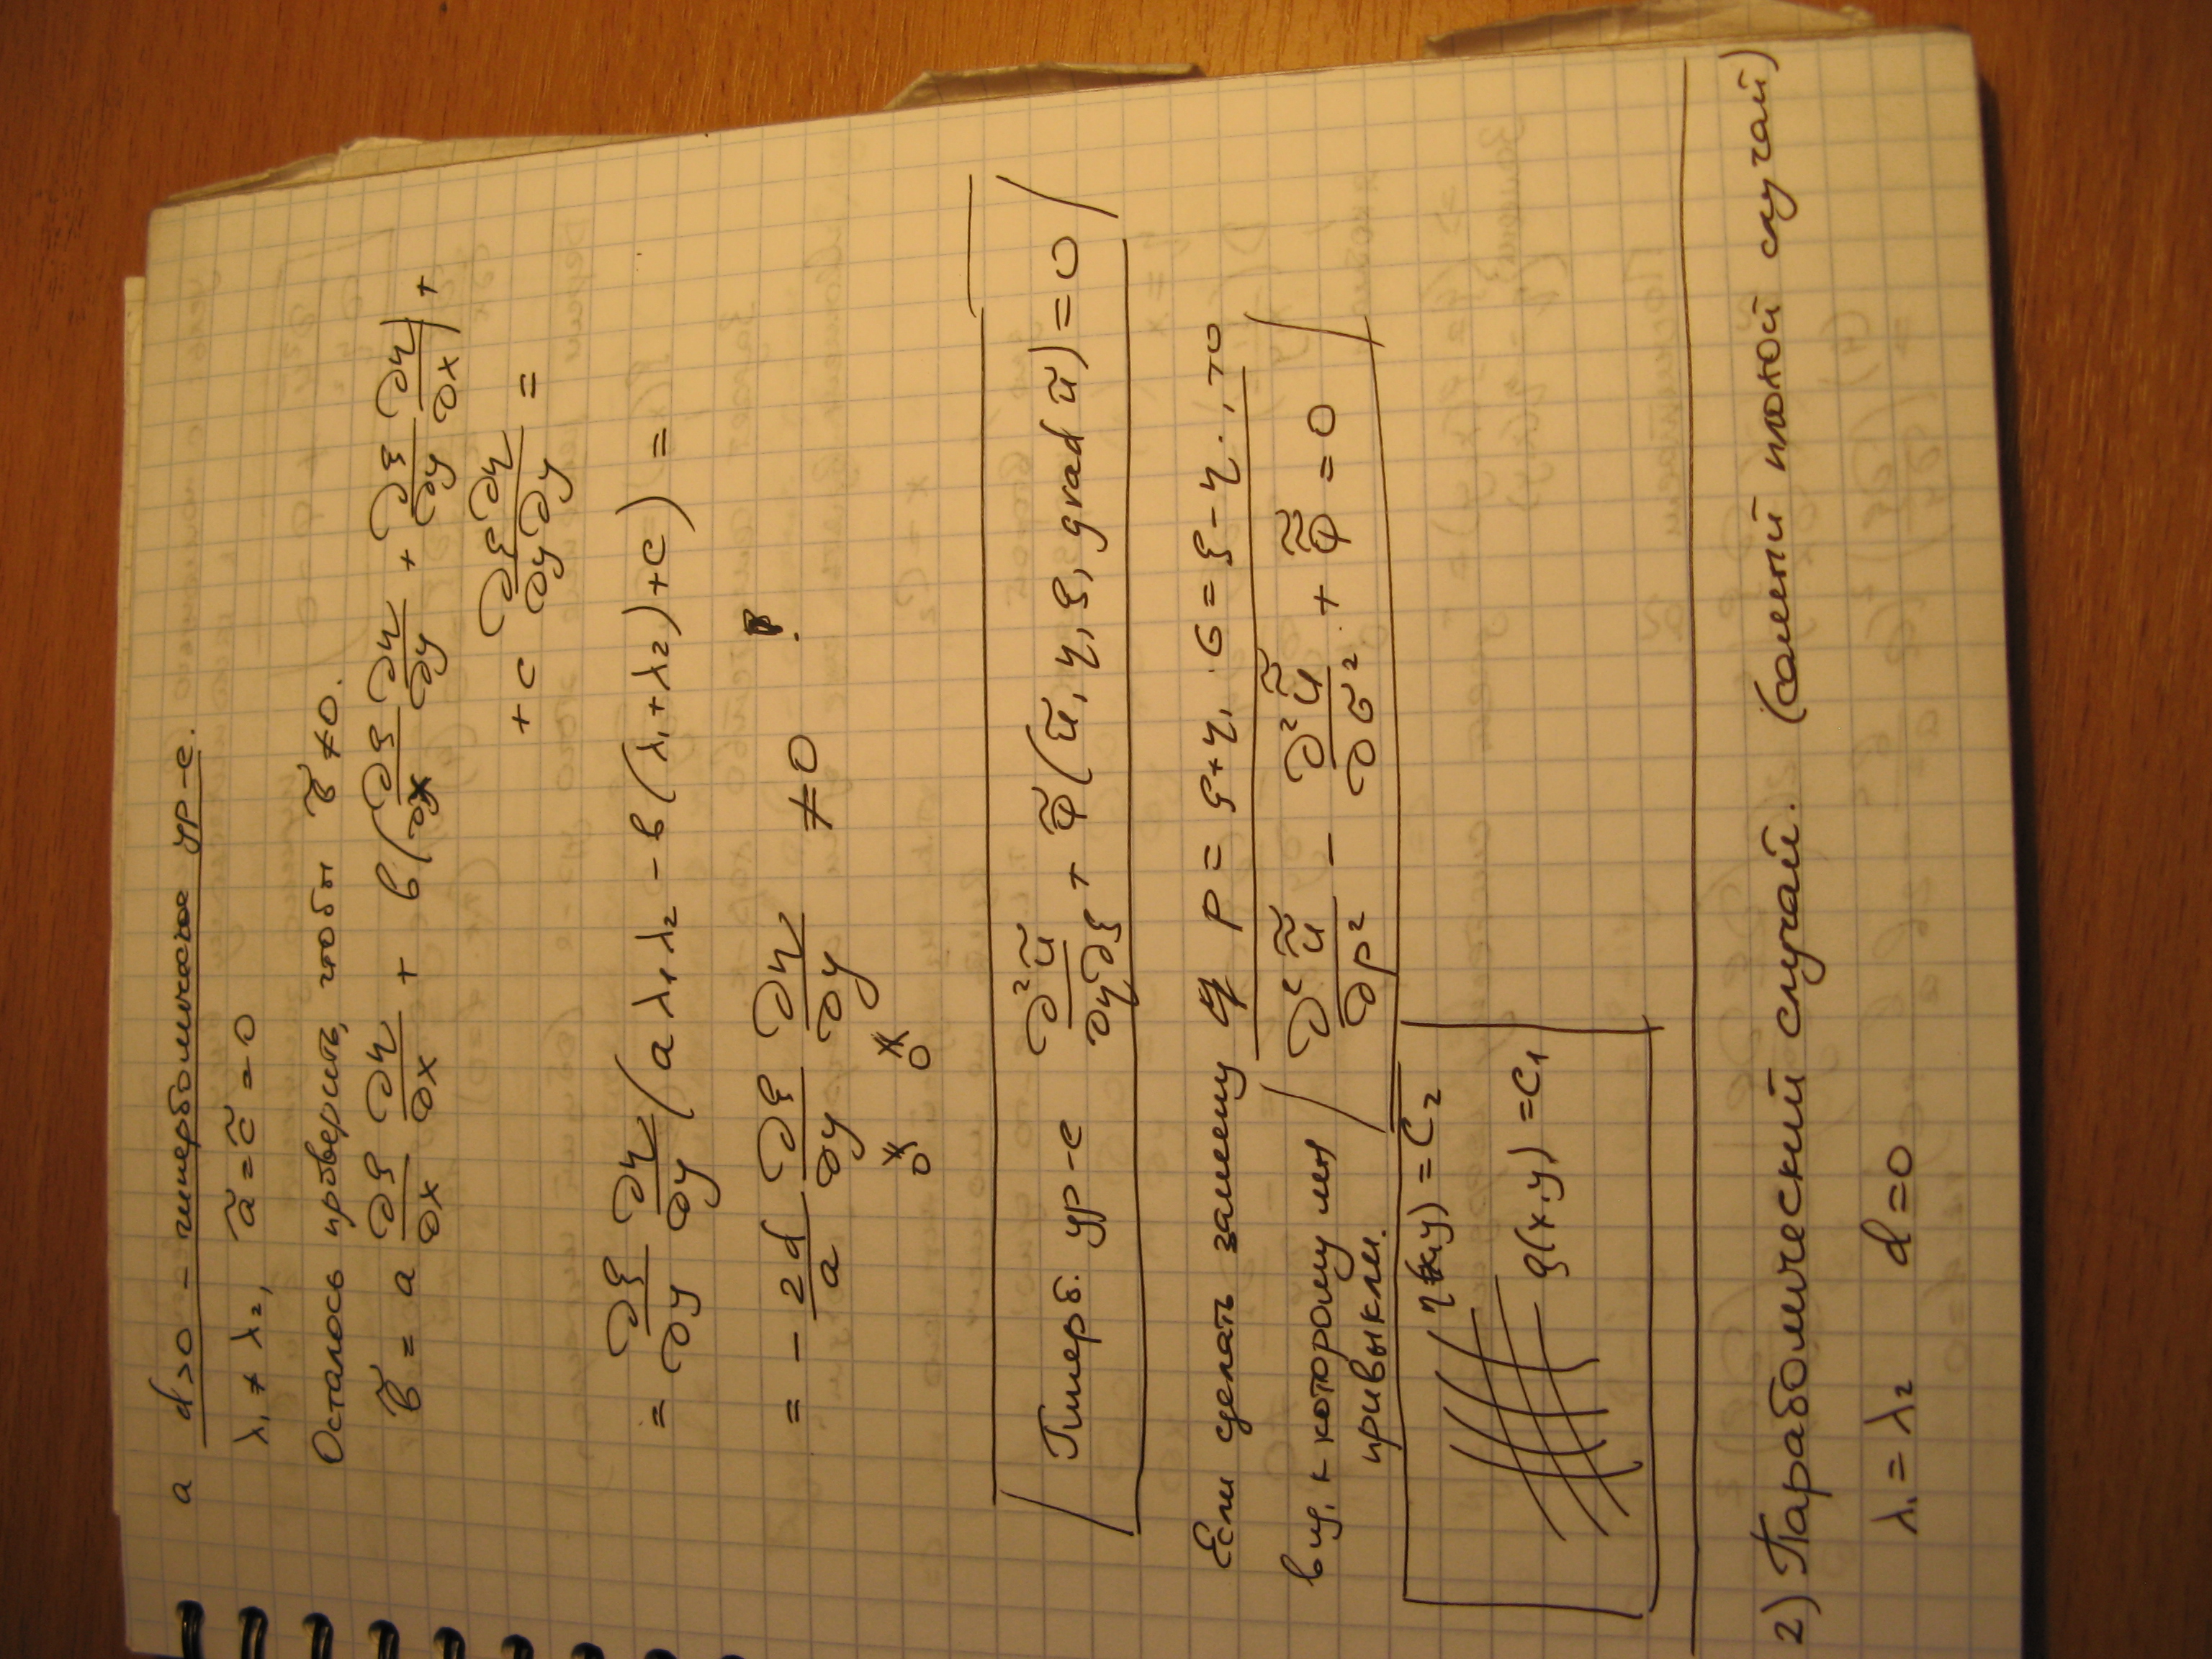 а d>0 – гиперболическое ур-е.
λ₁ ≠ λ₂, ã = c̃ = 0
Осталось проверить, чтобы b̃ ≠ 0.
b̃ = a ∂ξ/∂x ∂η/∂x + b(∂ξ/∂x ∂η/∂y + ∂ξ/∂y ∂η/∂x) +
+ c ∂ξ/∂y ∂η/∂y =
= ∂ξ/∂y ∂η/∂y (a λ₁λ₂ – b(λ₁+λ₂)+c) =
= – 2d/a ∂ξ/∂y ∂η/∂y ≠ 0
≠0 ≠0
Гиперб. ур-е ∂²ũ/∂η∂ξ + Φ̃(ũ, η, ξ, grad ũ) = 0
Если сделать замену p = ξ+η, σ = ξ–η, то
вид, к которому мы привыкли. ∂²ũ/∂p² – ∂²ũ/∂σ² + Φ̃̃ = 0
η(x,y) = C₂
ξ(x,y) = C₁
2) Параболический случай. (самый плохой случай)
λ₁ = λ₂ d = 0